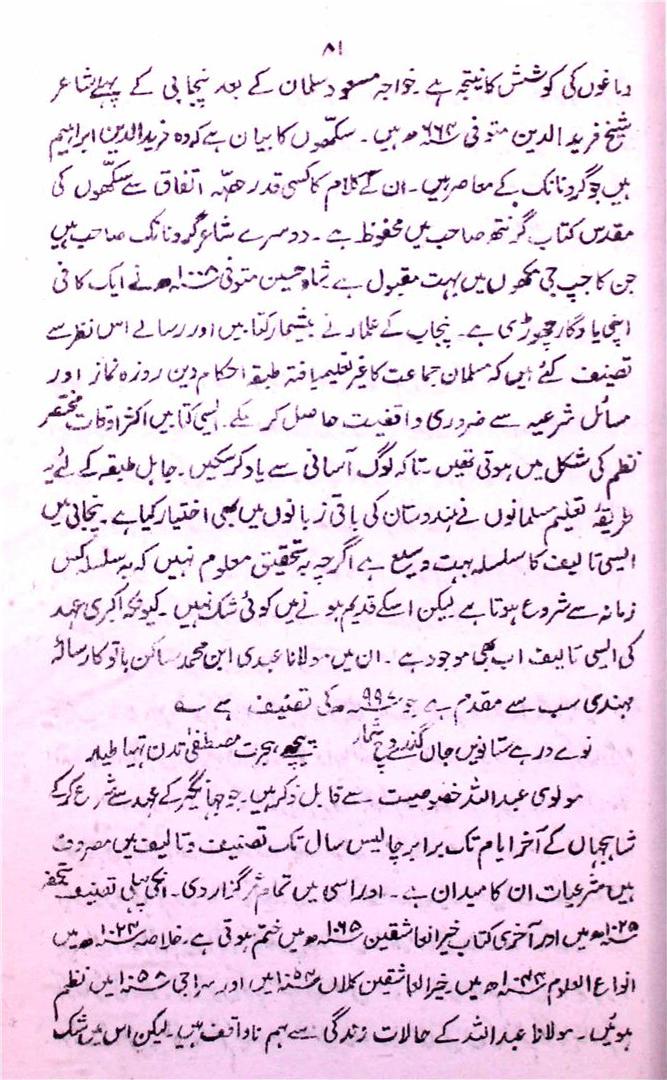 ۸۱
دماغوں کی کوشش کا نتیجہ ہے خواجہ مسعود سلمان کے بعد پنجابی کے پہلے شاعر
شیخ فرید الدین متوفی ۶۶۴ھ ہیں۔ سکھوں کا بیان ہے کہ وہ فرید الدین ابراہیم
ہیں جو گرو نانک کے معاصر ہیں۔ ان کے کلام کا کسی قدر حصہ اتفاق سے سکھوں کی
مقدس کتاب گرنتھ صاحب میں محفوظ ہے۔ دوسرے شاعر گرو نانک صاحب ہیں
جن کا جپ جی سکھوں میں بہت مقبول ہے شاہ حسین متوفی ۱۰۰۸ھ نے ایک کافی
اپنی یادگار چھوڑی ہے۔ پنجاب کے علماء نے بیشمار کتابیں اور رسالے اس نظر سے
تصنیف کئے ہیں کہ مسلمان جماعت کا غیر تعلیمیافتہ طبقہ احکام دین روزہ نماز اور
مسائل شرعیہ سے ضروری واقفیت حاصل کر سکے۔ ایسی کتابیں اکثر اوقات مختصر
نظم کی شکل میں ہوتی تھیں۔ تاکہ لوگ آسانی سے یاد کر سکیں۔ جاہل طبقہ کے لئے یہ
طریقۂ تعلیم مسلمانوں نے ہندوستان کی باقی زبانوں میں بھی اختیار کیا ہے۔ پنجابی میں
ایسی تالیف کا سلسلہ بہت وسیع ہے اگرچہ یہ تحقیق معلوم نہیں کہ یہ سلسلہ کس
زمانہ سے شروع ہوتا ہے لیکن اسکے قدیم ہونے میں کوئی شک نہیں۔ کیونکہ اکبری عہد
کی ایسی تالیف اب بھی موجود ہے۔ ان میں مولانا عبدی ابن محمد ساکن باتو کا رسالہ
مہندی سب سے مقدم ہے جو ۹۹۷ھ کی تصنیف ہے ؎
نوے در ہے ستانویں جاں گذرے وچ شمار پچھے ہجرت مصطفیٰ تدن تھیا طیار
مولوی عبداللہ خصوصیت سے قابل ذکر ہیں۔ جو جہانگیر کے عہد سے شروع کر کے
شاہجہاں کے آخر ایام تک برابر چالیس سال تک تصنیف و تالیف میں مصروف
ہیں شرعیات ان کا میدان ہے۔ اور اسی میں تمام عمر گزار دی۔ انکی پہلی تصنیف تحفہ
۱۰۲۵ھ میں اور آخری کتاب خیر العاشقین ۱۰۶۵ھ میں ختم ہوتی ہے۔ خلاصہ ۱۰۴۳ھ میں
انواع العلوم ۱۰۴۴ھ میں۔ خیر العاشقین کلاں ۱۰۵۴ میں اور سراجی ۱۰۵۸ میں نظم
ہوئیں۔ مولانا عبداللہ کے حالات زندگی سے ہم ناواقف ہیں۔ لیکن اس میں شک